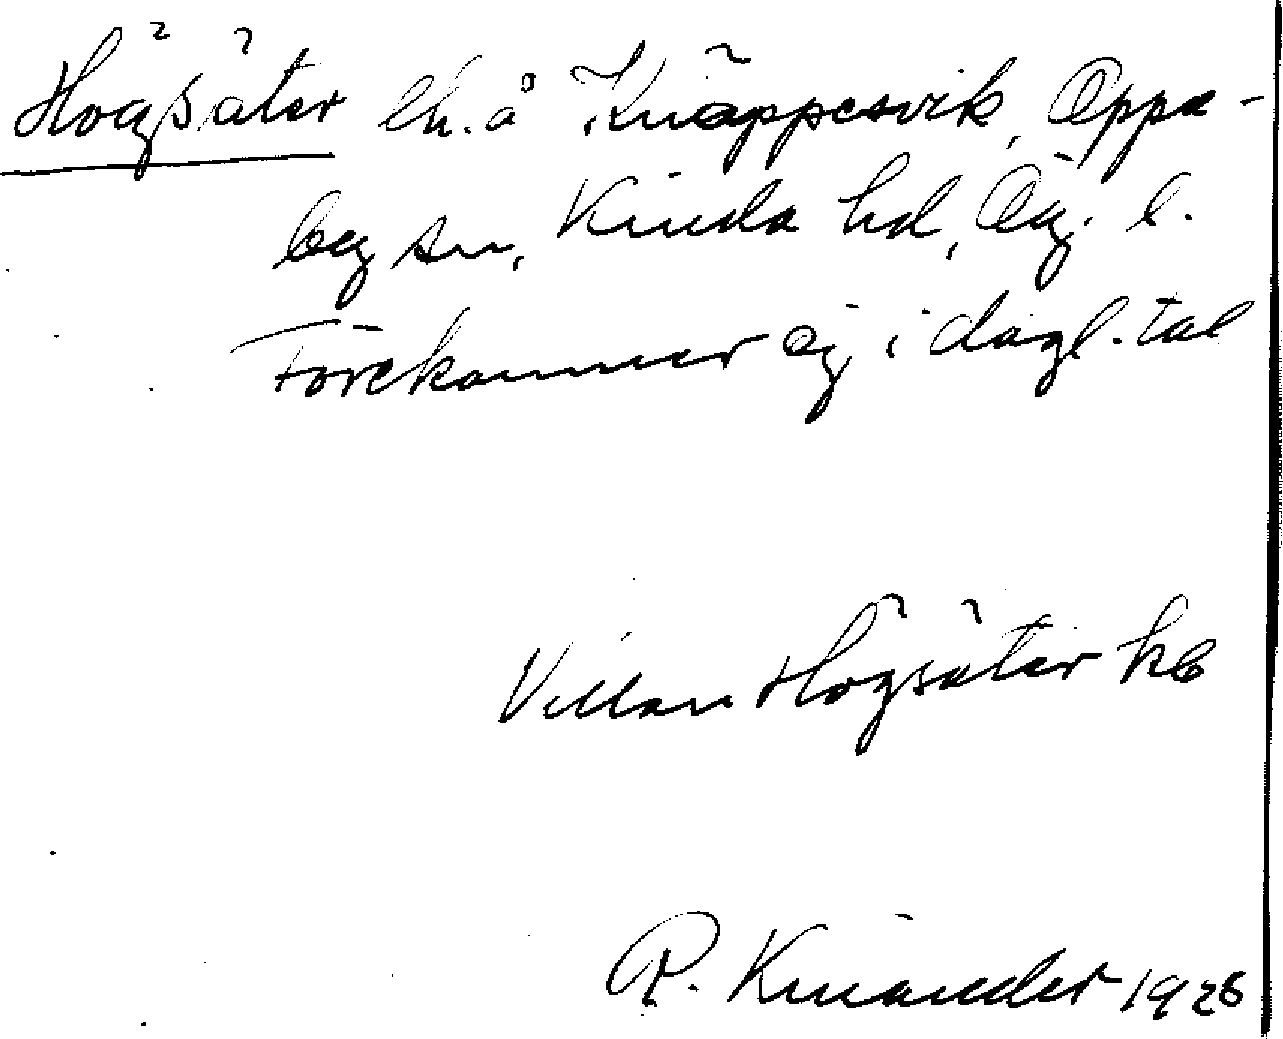 Högsäter lh. å Knäppesvik, Oppe-
by sn, Kinda hd, Ög. l.
Förekommer ej i dagl. tal
Villan Högsäter kb
R. Kinander 1926